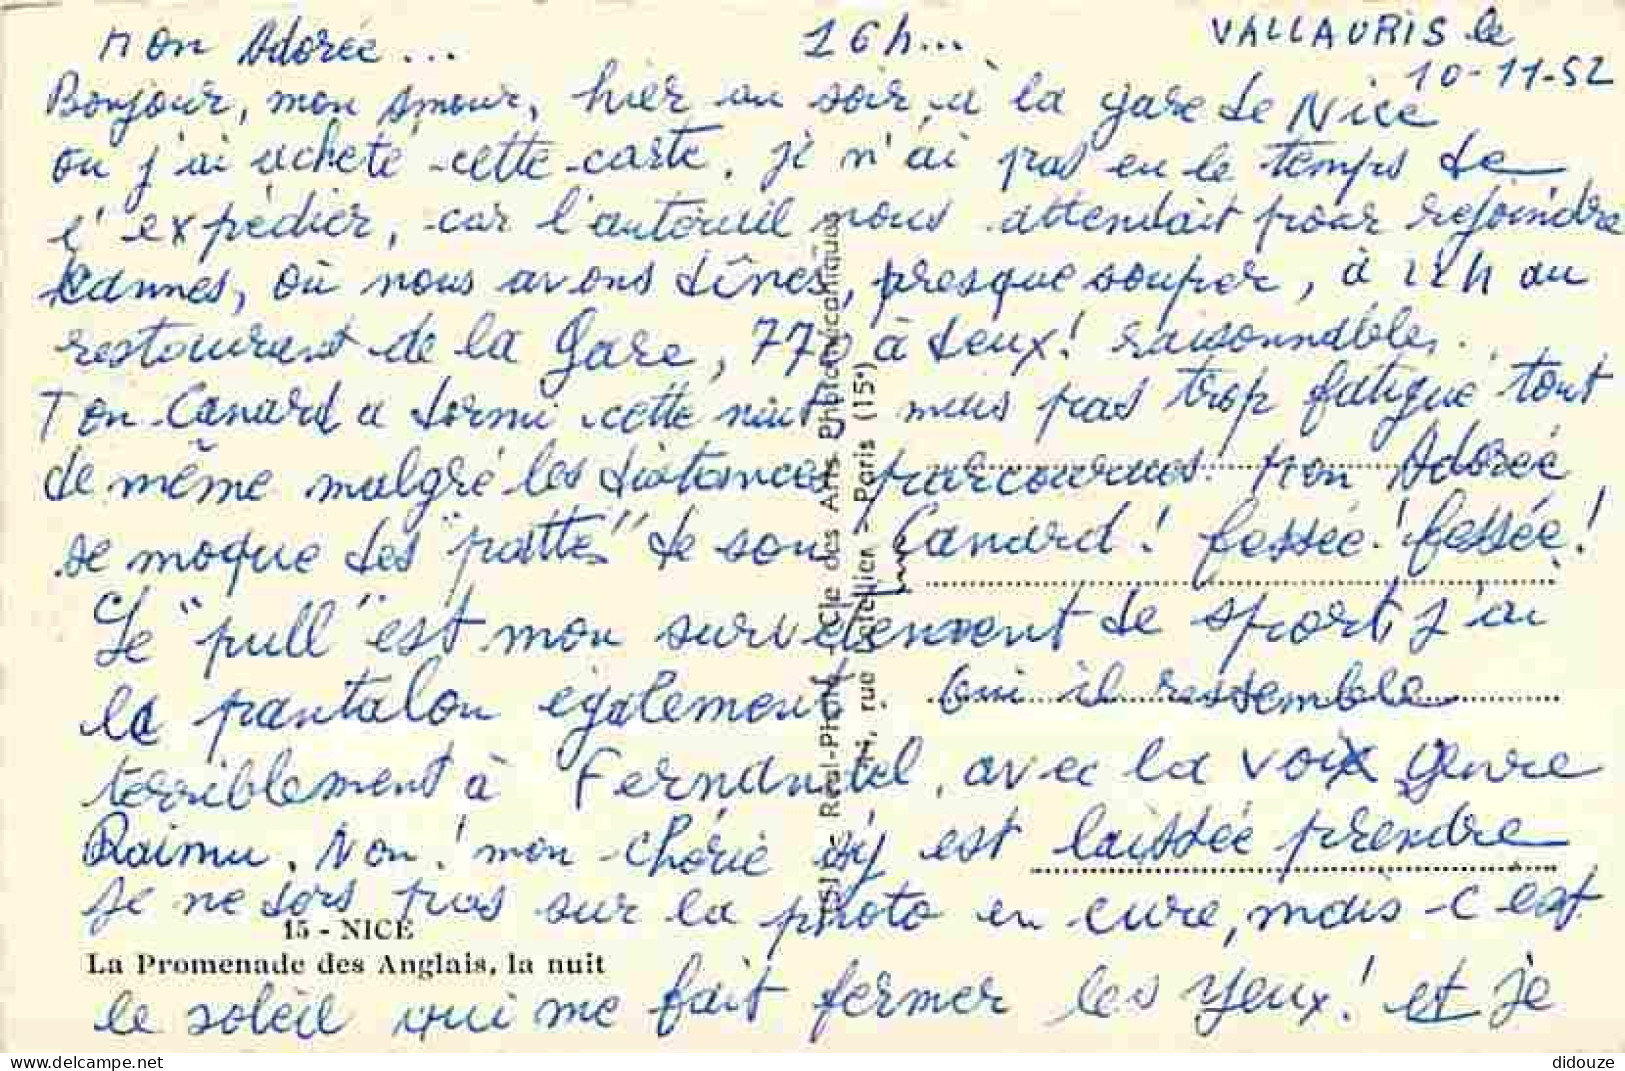 Mon Adorée... 16h... VALLAURIS le
10-11-52
Bonjour, mon Amour, hier au soir, à la gare de Nice
ou j'ai acheté cette carte, je n'ai pas eu le temps de
l'expédier, car l'auteuil nous attendait pour rejoindre
Cannes, où nous avons dînés, presque souper, à 22h au
restaurant de la Gare, 770 à deux! raisonnables.
Ton Canard a dormi cette nuit mais pas trop fatigué tout
de même malgré les distances parcourues. Mon Adorée
se moque des "pattes" de son Canard! fessée! fessée!
Le "pull" est mon survêtement de sport, j'ai
le pantalon également. Oui il ressemble
terriblement à Fernandel, avec la voix genre
Raimu. Non! mon chérie s'y est laissée prendre
Je ne dors pas sur la photo en cure, mais c'est
15 - NICE
La Promenade des Anglais, la nuit
le soleil qui me fait fermer les yeux! et je
Réal-Photo, Cie des Arts Photomécaniques
rue Letellier - Paris (15e)
didouze